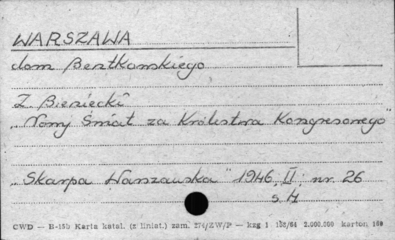 WARSZAWA
dom Bentkowskiego
Z. Bieniecki
„Nowy Świat za Królestwa Kongresowego"
„Skarpa Warszawska" 1946, II: nr. 26
s. 4
CWD — H-15b Karta katal. (z liniat.) zam. ZW/P — kzg 1 2.000.000 karton